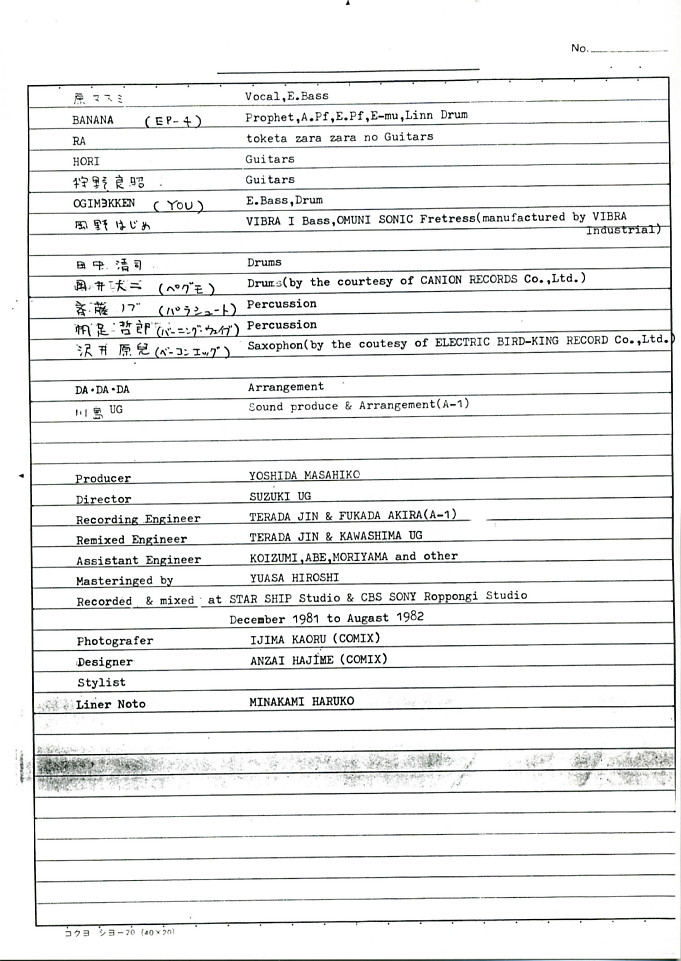 No.
原 マスミ Vocal,E.Bass
BANANA (EP-4) Prophet,A.Pf,E.Pf,E-mu,Linn Drum
RA toketa zara zara no Guitars
HORI Guitars
狩野良昭 Guitars
OGIMEKKEN (YOU) E.Bass,Drum
岡野はじめ VIBRA I Bass,OMUNI SONIC Fretress(manufactured by VIBRA
Industrial)
田中 清司 Drums
Drums(by the courtesy of CANION RECORDS Co.,Ltd.)
斉藤 ノブ (パラシュート) Percussion
帆足 哲郎 (バーニング・ウェイブ) Percussion
沢井 原兒 (ベーコンエッグ) Saxophon(by the coutesy of ELECTRIC BIRD-KING RECORD Co.,Ltd.)
DA・DA・DA Arrangement
川島 UG Sound produce & Arrangement(A-1)
Producer YOSHIDA MASAHIKO
Director SUZUKI UG
Recording Engineer TERADA JIN & FUKADA AKIRA(A-1)
Remixed Engineer TERADA JIN & KAWASHIMA UG
Assistant Engineer KOIZUMI,ABE,MORIYAMA and other
Masteringed by YUASA HIROSHI
Recorded & mixed at STAR SHIP Studio & CBS SONY Roppongi Studio
December 1981 to Augast 1982
Photografer IJIMA KAORU (COMIX)
Designer ANZAI HAJIME (COMIX)
Stylist
Liner Noto MINAKAMI HARUKO
コクヨ ショ-20 (40×20)